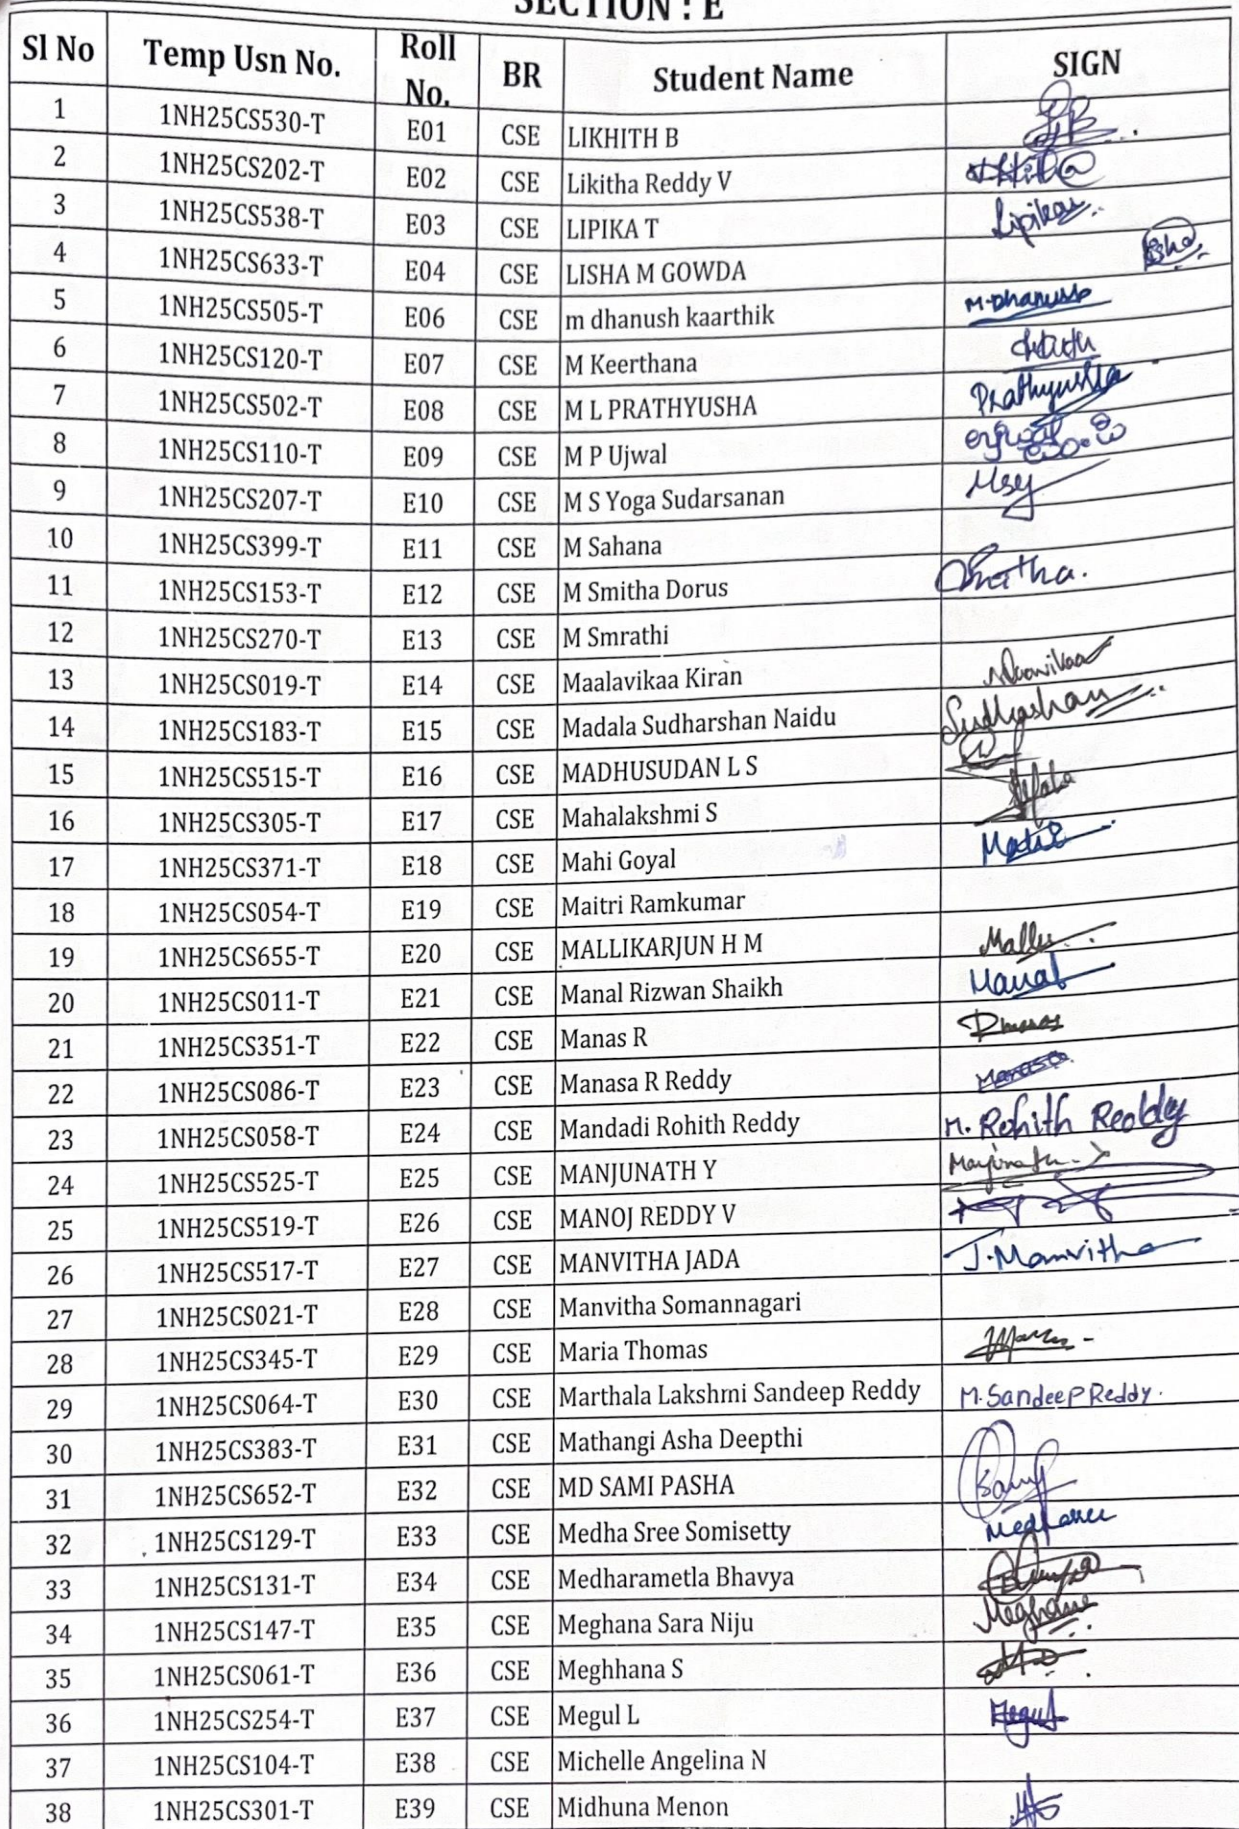 SECTION : E
Sl No Temp Usn No. Roll No. BR Student Name SIGN
1 1NH25CS530-T E01 CSE LIKHITH B
2 1NH25CS202-T E02 CSE Likitha Reddy V
3 1NH25CS538-T E03 CSE LIPIKA T Lipika
4 1NH25CS633-T E04 CSE LISHA M GOWDA
5 1NH25CS505-T E06 CSE m dhanush kaarthik M.Dhanush
6 1NH25CS120-T E07 CSE M Keerthana
7 1NH25CS502-T E08 CSE M L PRATHYUSHA Prathyusha
8 1NH25CS110-T E09 CSE M P Ujwal
9 1NH25CS207-T E10 CSE M S Yoga Sudarsanan Msy
10 1NH25CS399-T E11 CSE M Sahana
11 1NH25CS153-T E12 CSE M Smitha Dorus
12 1NH25CS270-T E13 CSE M Smrathi
13 1NH25CS019-T E14 CSE Maalavikaa Kiran
14 1NH25CS183-T E15 CSE Madala Sudharshan Naidu
15 1NH25CS515-T E16 CSE MADHUSUDAN L S
16 1NH25CS305-T E17 CSE Mahalakshmi S
17 1NH25CS371-T E18 CSE Mahi Goyal
18 1NH25CS054-T E19 CSE Maitri Ramkumar
19 1NH25CS655-T E20 CSE MALLIKARJUN H M Mallu
20 1NH25CS011-T E21 CSE Manal Rizwan Shaikh Manal
21 1NH25CS351-T E22 CSE Manas R
22 1NH25CS086-T E23 CSE Manasa R Reddy Manasa
23 1NH25CS058-T E24 CSE Mandadi Rohith Reddy M. Rohith Reddy
24 1NH25CS525-T E25 CSE MANJUNATH Y Manjunath. Y
25 1NH25CS519-T E26 CSE MANOJ REDDY V
26 1NH25CS517-T E27 CSE MANVITHA JADA J.Manvitha
27 1NH25CS021-T E28 CSE Manvitha Somannagari
28 1NH25CS345-T E29 CSE Maria Thomas
29 1NH25CS064-T E30 CSE Marthala Lakshmi Sandeep Reddy M.Sandeep Reddy.
30 1NH25CS383-T E31 CSE Mathangi Asha Deepthi
31 1NH25CS652-T E32 CSE MD SAMI PASHA
32 1NH25CS129-T E33 CSE Medha Sree Somisetty
33 1NH25CS131-T E34 CSE Medharametla Bhavya
34 1NH25CS147-T E35 CSE Meghana Sara Niju Meghana
35 1NH25CS061-T E36 CSE Meghhana S
36 1NH25CS254-T E37 CSE Megul L Megul
37 1NH25CS104-T E38 CSE Michelle Angelina N
38 1NH25CS301-T E39 CSE Midhuna Menon